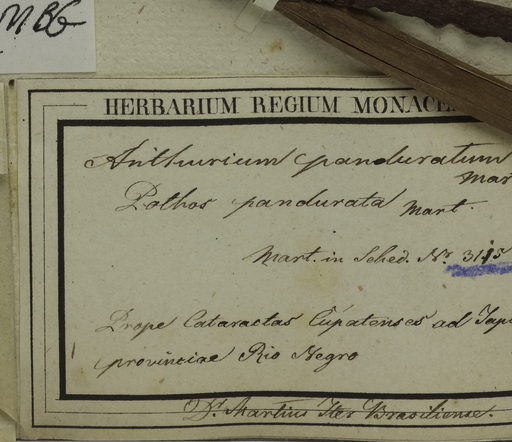 MBG
HERBARIUM REGIUM MONACE
Anthurium panduratum
Mar
Pothos pandurata Mart.
Mart. in Sched. Nr. 3115
Prope Cataractas Cupatenses ad Japu
provinciae Rio Negro
Dr. Martius Iter Brasiliense.